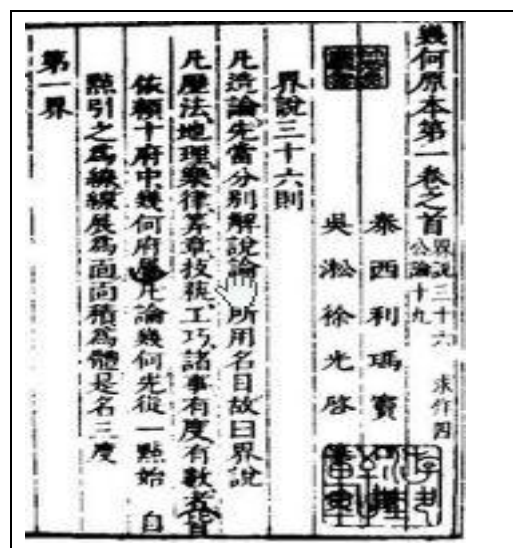 幾何原本第一卷之首 界說三十六 求作四
公論十九
泰西利瑪竇
吳淞徐光啓
界說三十六則
凡造論先當分別解說論 所用名目故曰界說
凡歷法地理樂律算章技藝工巧諸事有度有數者皆
依賴十府中幾何府 凡論幾何先從一點始 自
點引之爲線線展爲面面積爲體是名三度
第一界